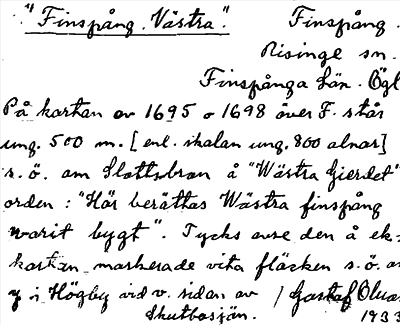 "Finspång Västra".
Finspång.
Risinge sn.
Finspånga län. Ögl
På kartan av 1695 o 1698 över F. står
ung. 500 m. [enl. skalan ung. 800 alnar]
s.ö. om Slottsbron å "Wästra Gierdet"
orden: "Här berättas Wästra finspång
warit bygt". Tycks avse den å ek-
kartan markerade vita fläcken s.ö. om
y i Högby vid v. sidan av / Gustaf
Skutbosjön. 1933